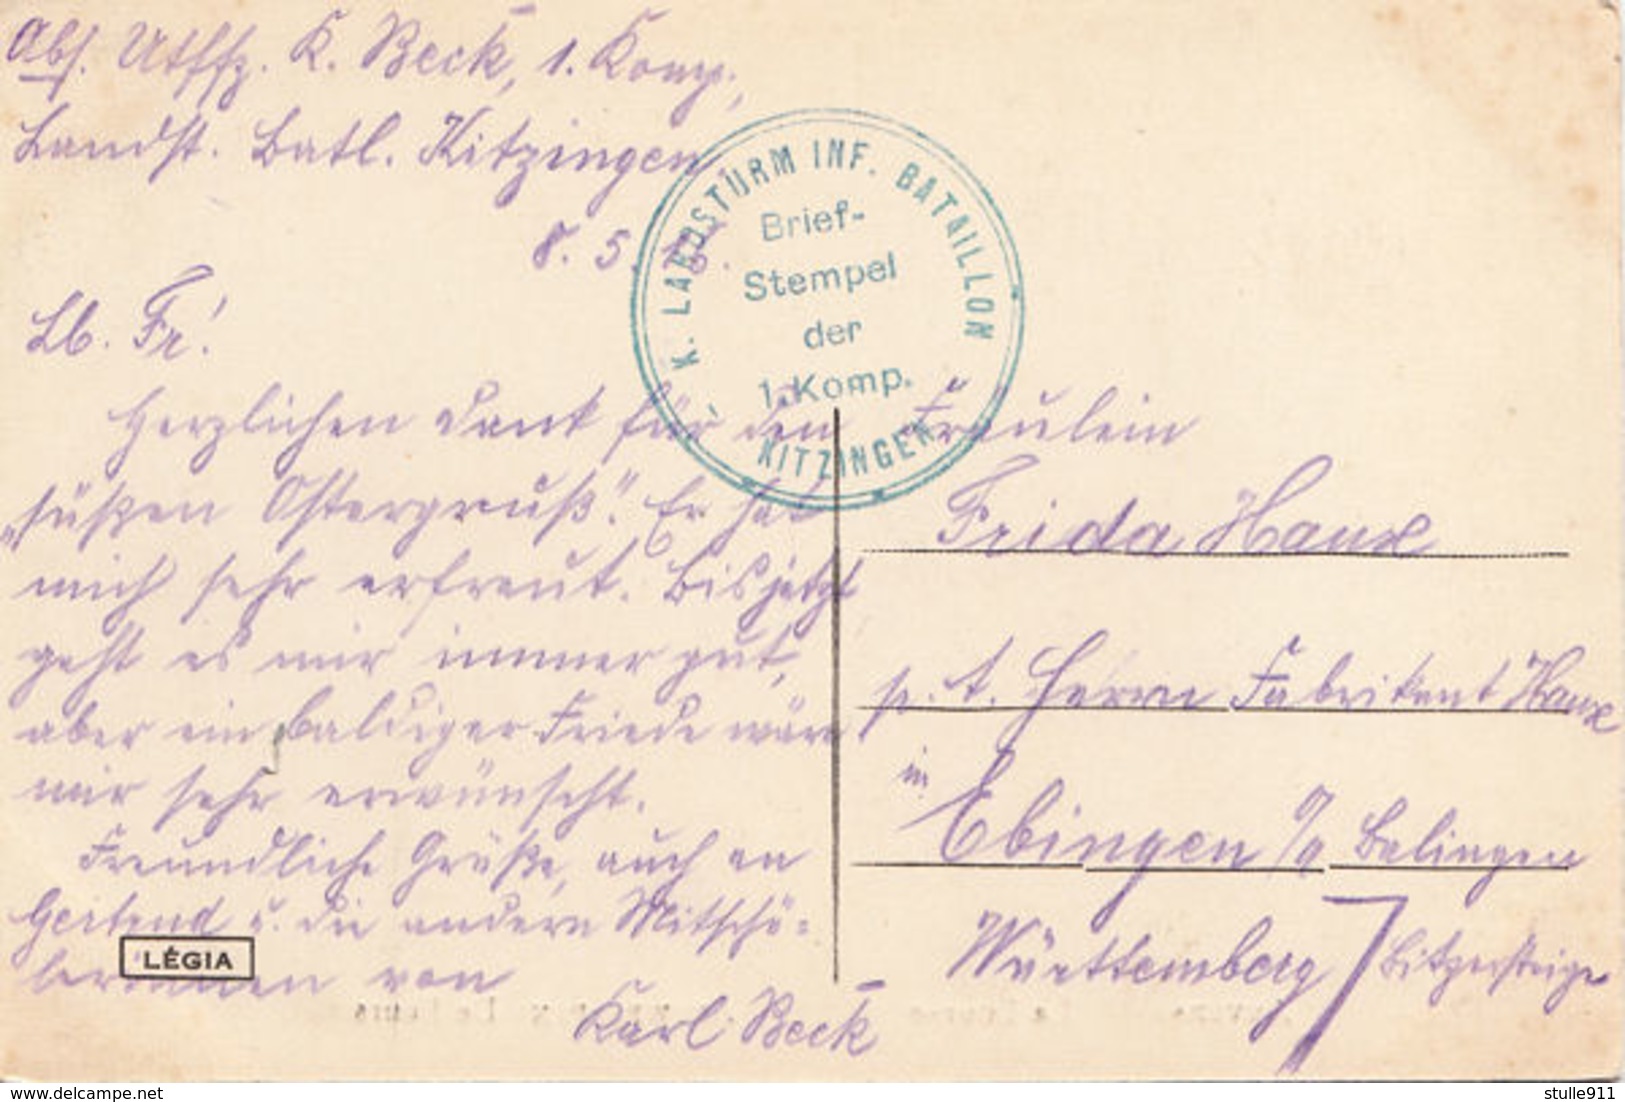 Abs. Utffz. K. Beck, 1. Komp.,
Landst. Batl. Kitzingen,
8. 5.
Lb. Fr.!
Herzlichen Dank für den
„süßen Ostergruß". Er hat
mich sehr erfreut. Bis jetzt
geht es mir immer gut,
aber ein baldiger Friede wäre
mir sehr erwünscht.
Freundliche Grüße, auch an
u. die andern Mitschü=
lerinnen von
Karl Beck
K. LANDSTURM INF. BATAILLON
KITZINGEN
Brief-
Stempel
der
1. Komp.
Fräulein
Frida Haux
p. A. Herrn Fabrikant Haux
in
Ebingen O/A Balingen
Württemberg
Bitzersteige
LÉGIA
delcampe.net
stulle911